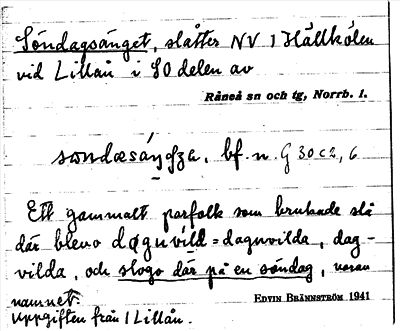 Söndagsänget, slåtter NV I Hällkölen
vid Lillån i SO delen av
Råneå sn och tg, Norrb. l.
bf. n. G 30 c 2, 6
Ett gammalt parfolk som brukade slå
där blevo dagnvild = dagnvilda, dag-
vilda, och slogo där på en söndag, varav
namnet.
Uppgiften från I Lillån.
EDVIN BRÄNNSTRÖM 1941